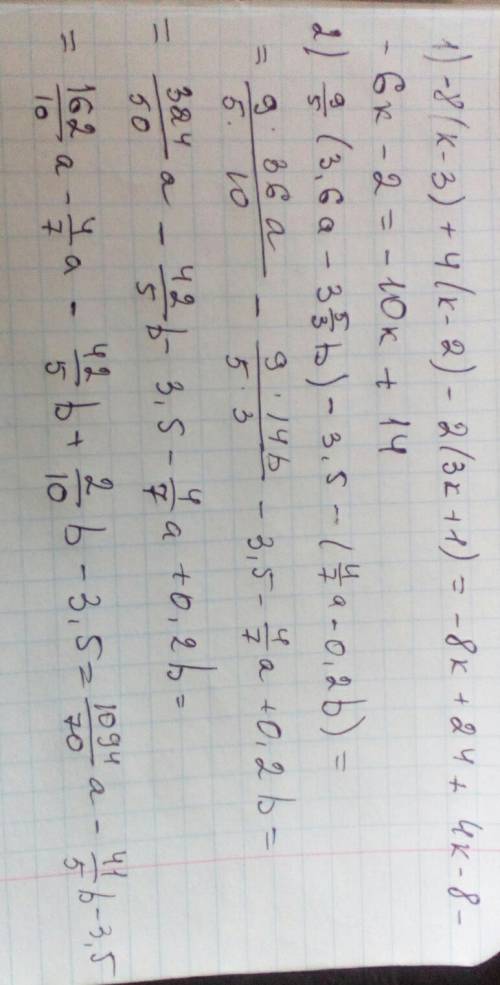 1) -8(x-3) + 4(x-2) - 2(3x+1) = -8x + 24 + 4x - 8 -
- 6x - 2 = -10x + 14
2) 9/5 (3,6a - 3 5/3 b) - 3,5 - (4/7 a - 0,2b) =
= 9·36a/5·10 - 9·14b/5·3 - 3,5 - 4/7 a + 0,2b =
= 324/50 a - 42/5 b - 3,5 - 4/7 a + 0,2b =
= 162/10 a - 4/7 a - 42/5 b + 2/10 b - 3,5 = 1094/70 a - 41/5 b - 3,5